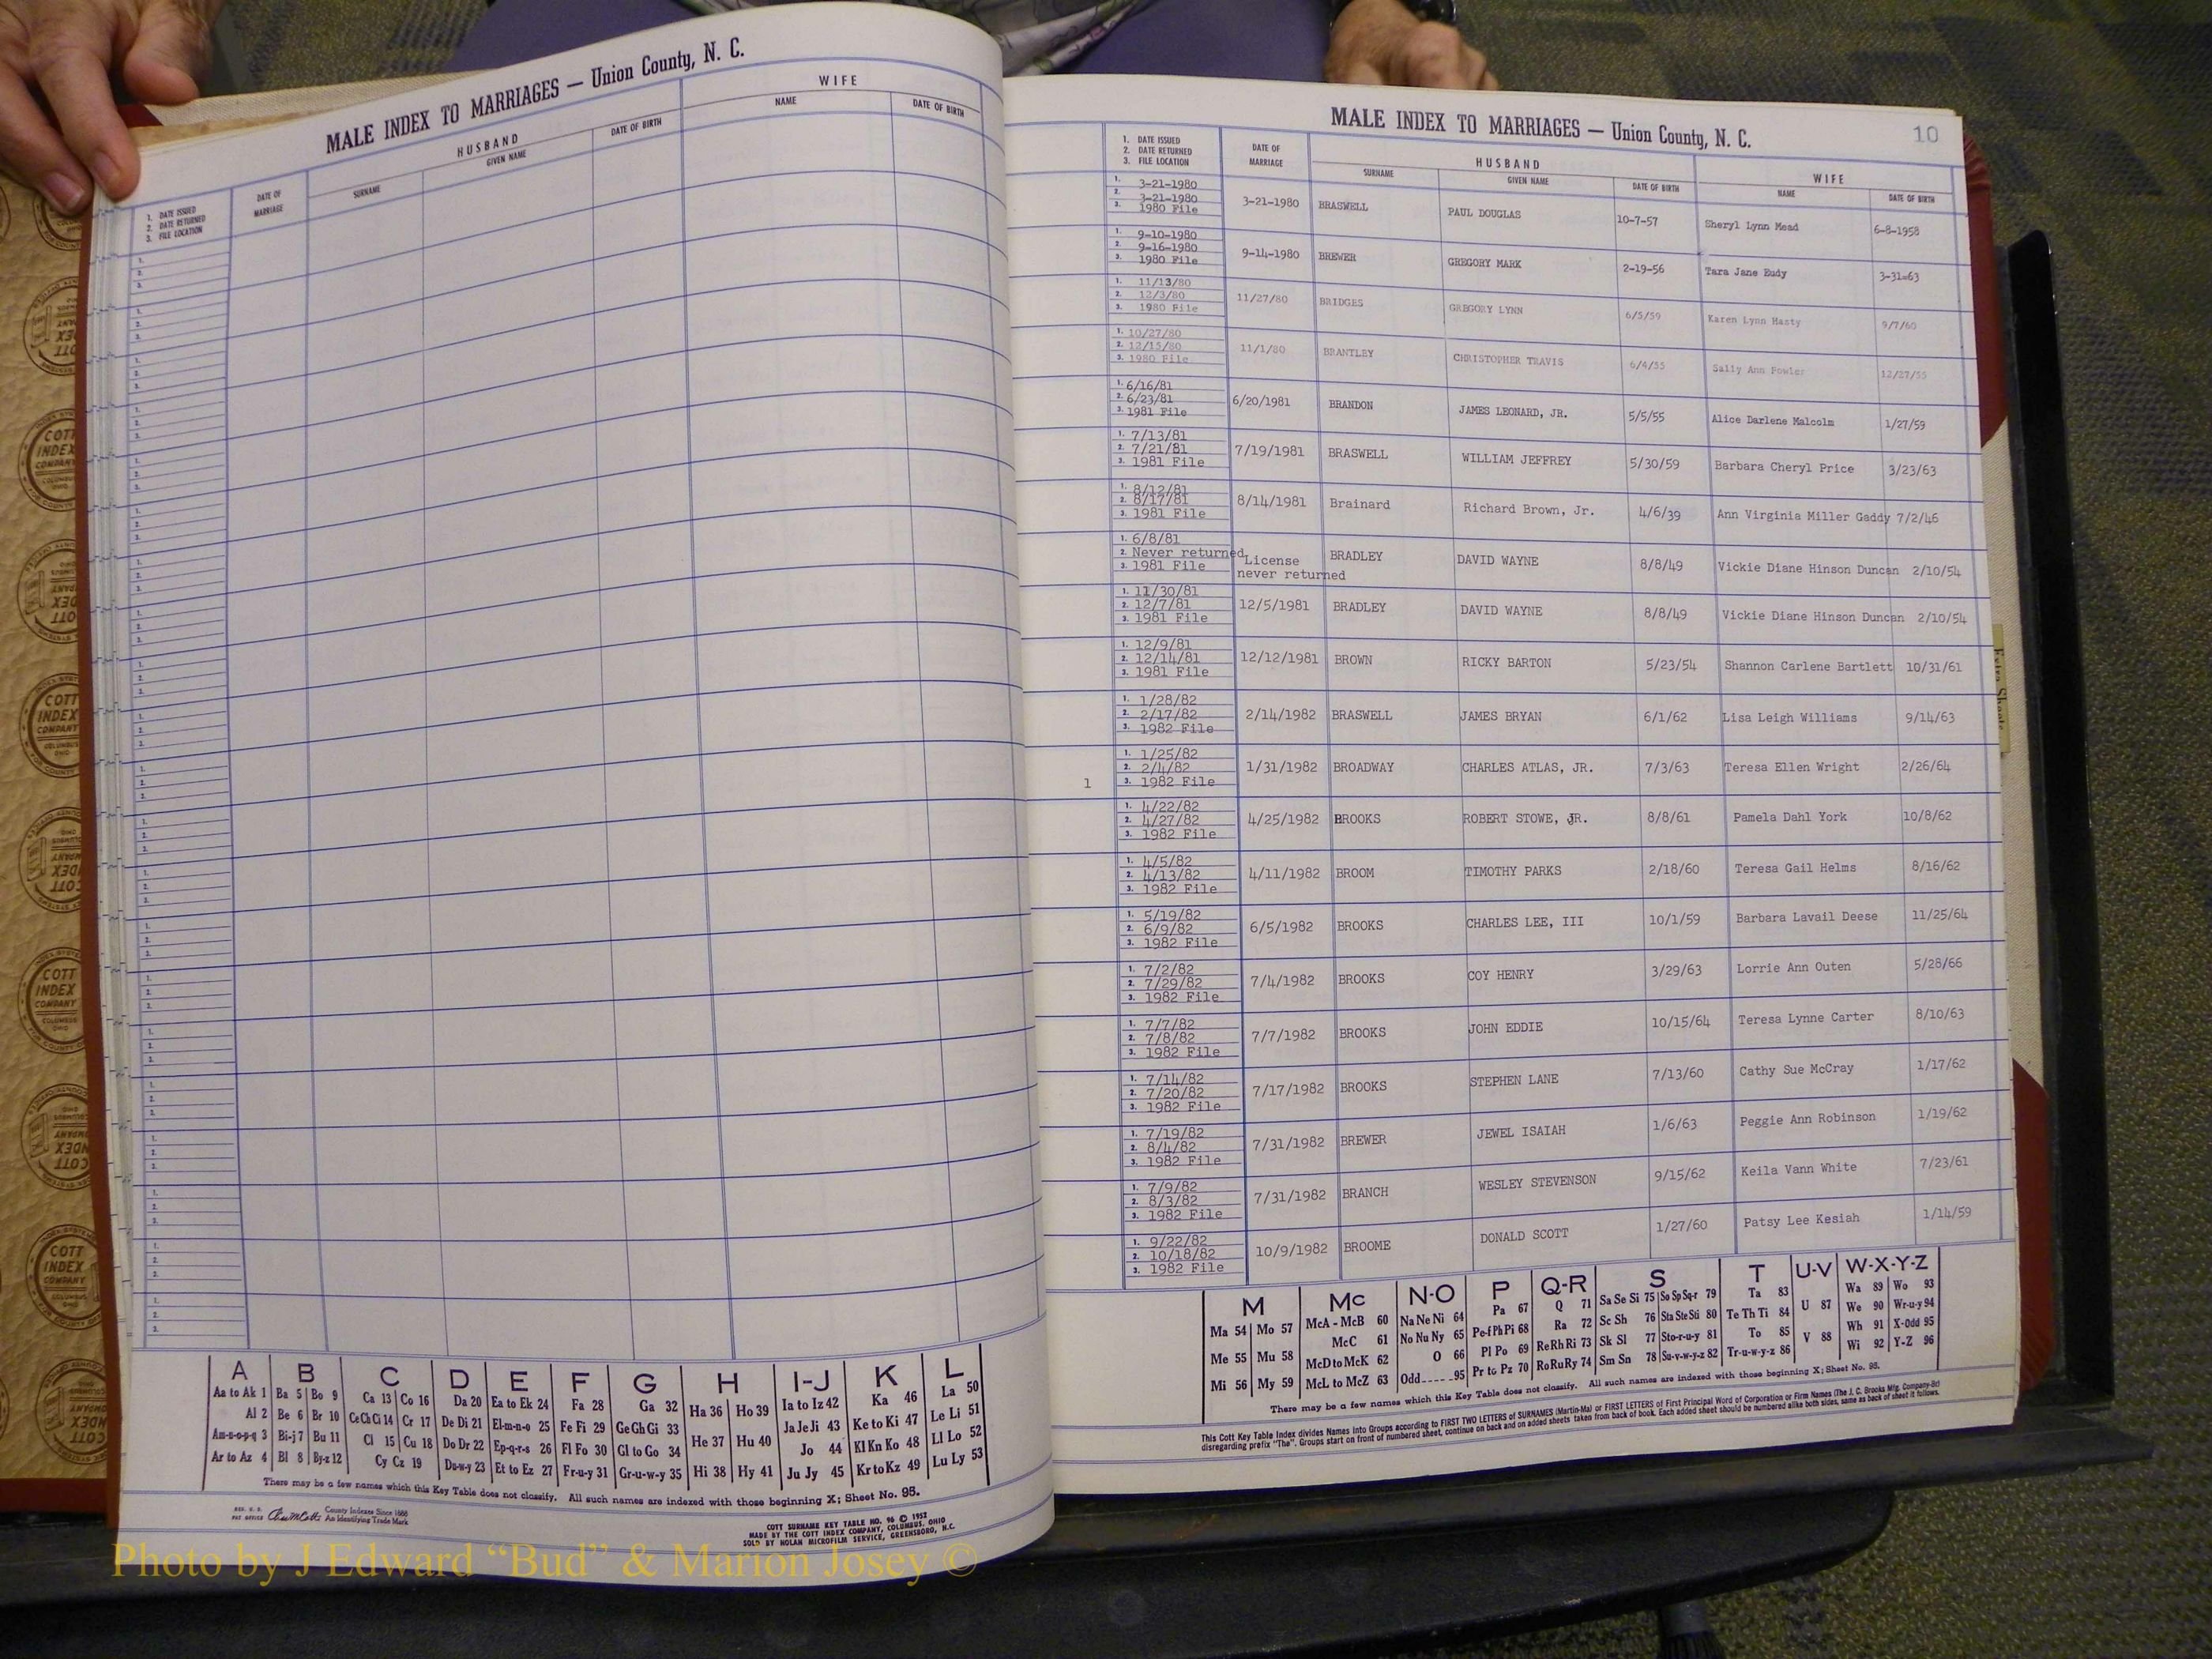 MALE INDEX TO MARRIAGES — Union County, N. C.
HUSBAND
WIFE
1. DATE ISSUED
2. DATE RETURNED
3. FILE LOCATION
DATE OF MARRIAGE
SURNAME
GIVEN NAME
DATE OF BIRTH
NAME
DATE OF BIRTH
A B C D E F G H I-J K L
Aa to Ak 1 Ba 5 Bo 9 Ca 13 Co 16 Da 20 Ea to Ek 24 Fa 28 Ga 32 Ha 36 Ho 39 Ia to Iz 42 Ka 46 La 50
Al 2 Be 6 Br 10 Ce Ch Ci 14 Cr 17 De Di 21 El-m-n-o 25 Fe Fi 29 Ge Gh Gi 33 He 37 Hu 40 Ja Je Ji 43 Ke to Ki 47 Le Li 51
Am-n-o-p-q 3 Bi-j 7 Bu 11 Cl 15 Cu 18 Do Dr 22 Ep-q-r-s 26 Fl Fo 30 Gl to Go 34 Hi 38 Hy 41 Jo 44 Kl Kn Ko 48 Ll Lo 52
Ar to Az 4 Bl 8 By-z 12 Cy Cz 19 Du-w-y 23 Et to Ez 27 Fr-u-y 31 Gr-u-w-y 35 Ju Jy 45 Kr to Kz 49 Lu Ly 53
There may be a few names which this Key Table does not classify. All such names are indexed with those beginning X; Sheet No. 95.
REG. U. S. PAT OFFICE
County Indexes Since 1888
An Identifying Trade Mark
COTT SURNAME KEY TABLE NO. 96 © 1952
MADE BY THE COTT INDEX COMPANY, COLUMBUS, OHIO
SOLD BY NOLAN MICROFILM SERVICE, GREENSBORO, N.C.
Photo by J Edward “Bud” & Marion Josey ©
MALE INDEX TO MARRIAGES — Union County, N. C.
10
1. DATE ISSUED
2. DATE RETURNED
3. FILE LOCATION
DATE OF MARRIAGE
HUSBAND
WIFE
SURNAME
GIVEN NAME
DATE OF BIRTH
NAME
DATE OF BIRTH
1. 3-21-1980
2. 3-21-1980
3. 1980 File
3-21-1980 BRASWELL PAUL DOUGLAS 10-7-57 Sheryl Lynn Mead 6-8-1958
1. 9-10-1980
2. 9-16-1980
3. 1980 File
9-14-1980 BREWER GREGORY MARK 2-19-56 Tara Jane Eudy 3-31=63
1. 11/13/80
2. 12/3/80
3. 1980 File
11/27/80 BRIDGES GREGORY LYNN 6/5/59 Karen Lynn Hasty 9/7/60
1. 10/27/80
2. 12/15/80
3. 1980 File
11/1/80 BRANTLEY CHRISTOPHER TRAVIS 6/4/55 Sally Ann Fowler 12/27/55
1. 6/16/81
2. 6/23/81
3. 1981 File
6/20/1981 BRANDON JAMES LEONARD, JR. 5/5/55 Alice Darlene Malcolm 1/27/59
1. 7/13/81
2. 7/21/81
3. 1981 File
7/19/1981 BRASWELL WILLIAM JEFFREY 5/30/59 Barbara Cheryl Price 3/23/63
1. 8/12/81
2. 8/17/81
3. 1981 File
8/14/1981 Brainard Richard Brown, Jr. 4/6/39 Ann Virginia Miller Gaddy 7/2/46
1. 6/8/81
2. Never returned
3. 1981 File
License never returned BRADLEY DAVID WAYNE 8/8/49 Vickie Diane Hinson Duncan 2/10/54
1. 11/30/81
2. 12/7/81
3. 1981 File
12/5/1981 BRADLEY DAVID WAYNE 8/8/49 Vickie Diane Hinson Duncan 2/10/54
1. 12/9/81
2. 12/14/81
3. 1981 File
12/12/1981 BROWN RICKY BARTON 5/23/54 Shannon Carlene Bartlett 10/31/61
1. 1/28/82
2. 2/17/82
3. 1982 File
2/14/1982 BRASWELL JAMES BRYAN 6/1/62 Lisa Leigh Williams 9/14/63
1
1. 1/25/82
2. 2/4/82
3. 1982 File
1/31/1982 BROADWAY CHARLES ATLAS, JR. 7/3/63 Teresa Ellen Wright 2/26/64
1. 4/22/82
2. 4/27/82
3. 1982 File
4/25/1982 BROOKS ROBERT STOWE, JR. 8/8/61 Pamela Dahl York 10/8/62
1. 4/5/82
2. 4/13/82
3. 1982 File
4/11/1982 BROOM TIMOTHY PARKS 2/18/60 Teresa Gail Helms 8/16/62
1. 5/19/82
2. 6/9/82
3. 1982 File
6/5/1982 BROOKS CHARLES LEE, III 10/1/59 Barbara Lavail Deese 11/25/64
1. 7/2/82
2. 7/29/82
3. 1982 File
7/4/1982 BROOKS COY HENRY 3/29/63 Lorrie Ann Outen 5/28/66
1. 7/7/82
2. 7/8/82
3. 1982 File
7/7/1982 BROOKS JOHN EDDIE 10/15/64 Teresa Lynne Carter 8/10/63
1. 7/14/82
2. 7/20/82
3. 1982 File
7/17/1982 BROOKS STEPHEN LANE 7/13/60 Cathy Sue McCray 1/17/62
1. 7/19/82
2. 8/4/82
3. 1982 File
7/31/1982 BREWER JEWEL ISAIAH 1/6/63 Peggie Ann Robinson 1/19/62
1. 7/9/82
2. 8/3/82
3. 1982 File
7/31/1982 BRANCH WESLEY STEVENSON 9/15/62 Keila Vann White 7/23/61
1. 9/22/82
2. 10/18/82
3. 1982 File
10/9/1982 BROOME DONALD SCOTT 1/27/60 Patsy Lee Kesiah 1/14/59
M Mc N-O P Q-R S T U-V W-X-Y-Z
Ma 54 Mo 57 McA - McB 60 Na Ne Ni 64 Pa 67 Q 71 Sa Se Si 75 So Sp Sq-r 79 Ta 83 U 87 Wa 89 Wo 93
Me 55 Mu 58 McC 61 No Nu Ny 65 Pe-f Ph Pi 68 Ra 72 Sc Sh 76 Sta Ste Sti 80 Te Th Ti 84 V 88 We 90 Wr-u-y 94
Mi 56 My 59 McD to McK 62 O 66 Pl Po 69 Re Rh Ri 73 Sk Sl 77 Sto-r-u-y 81 To 85 Wh 91 X-Odd 95
McL to McZ 63 Odd 95 Pr to Pz 70 Ro Ru Ry 74 Sm Sn 78 Su-v-w-y-z 82 Tr-u-w-y-z 86 Wi 92 Y-Z 96
There may be a few names which this Key Table does not classify. All such names are indexed with those beginning X; Sheet No. 95.
This Cott Key Table Index divides Names into Groups according to FIRST TWO LETTERS of SURNAMES (Martin-Ma) or FIRST LETTERS of First Principal Word of Corporation or Firm Names (The J. C. Brooks Mfg. Company-Br)
disregarding prefix "The". Groups start on front of numbered sheet, continue on back and on added sheets taken from back of book. Each added sheet should be numbered alike both sides, same as back of sheet it follows.
COTT INDEX COMPANY COLUMBUS OHIO